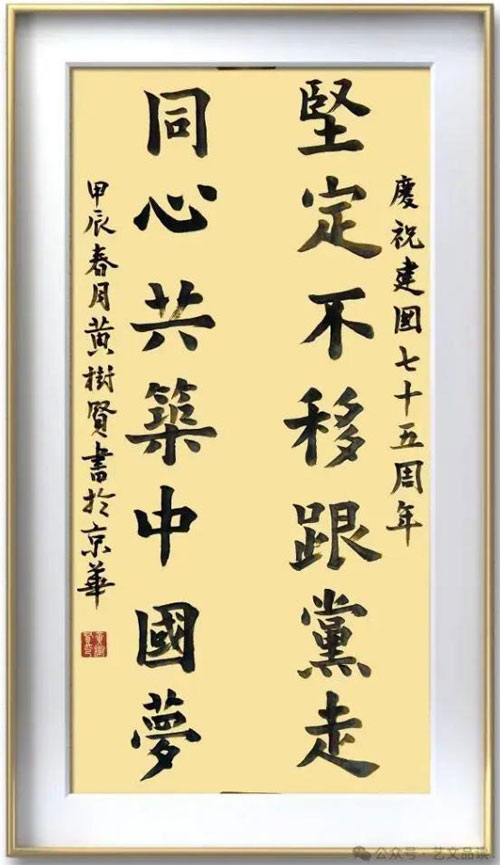 慶祝建國七十五周年
堅定不移跟黨走
同心共築中國夢
甲辰春月黄樹賢書於京華
公众号·艺文品谈